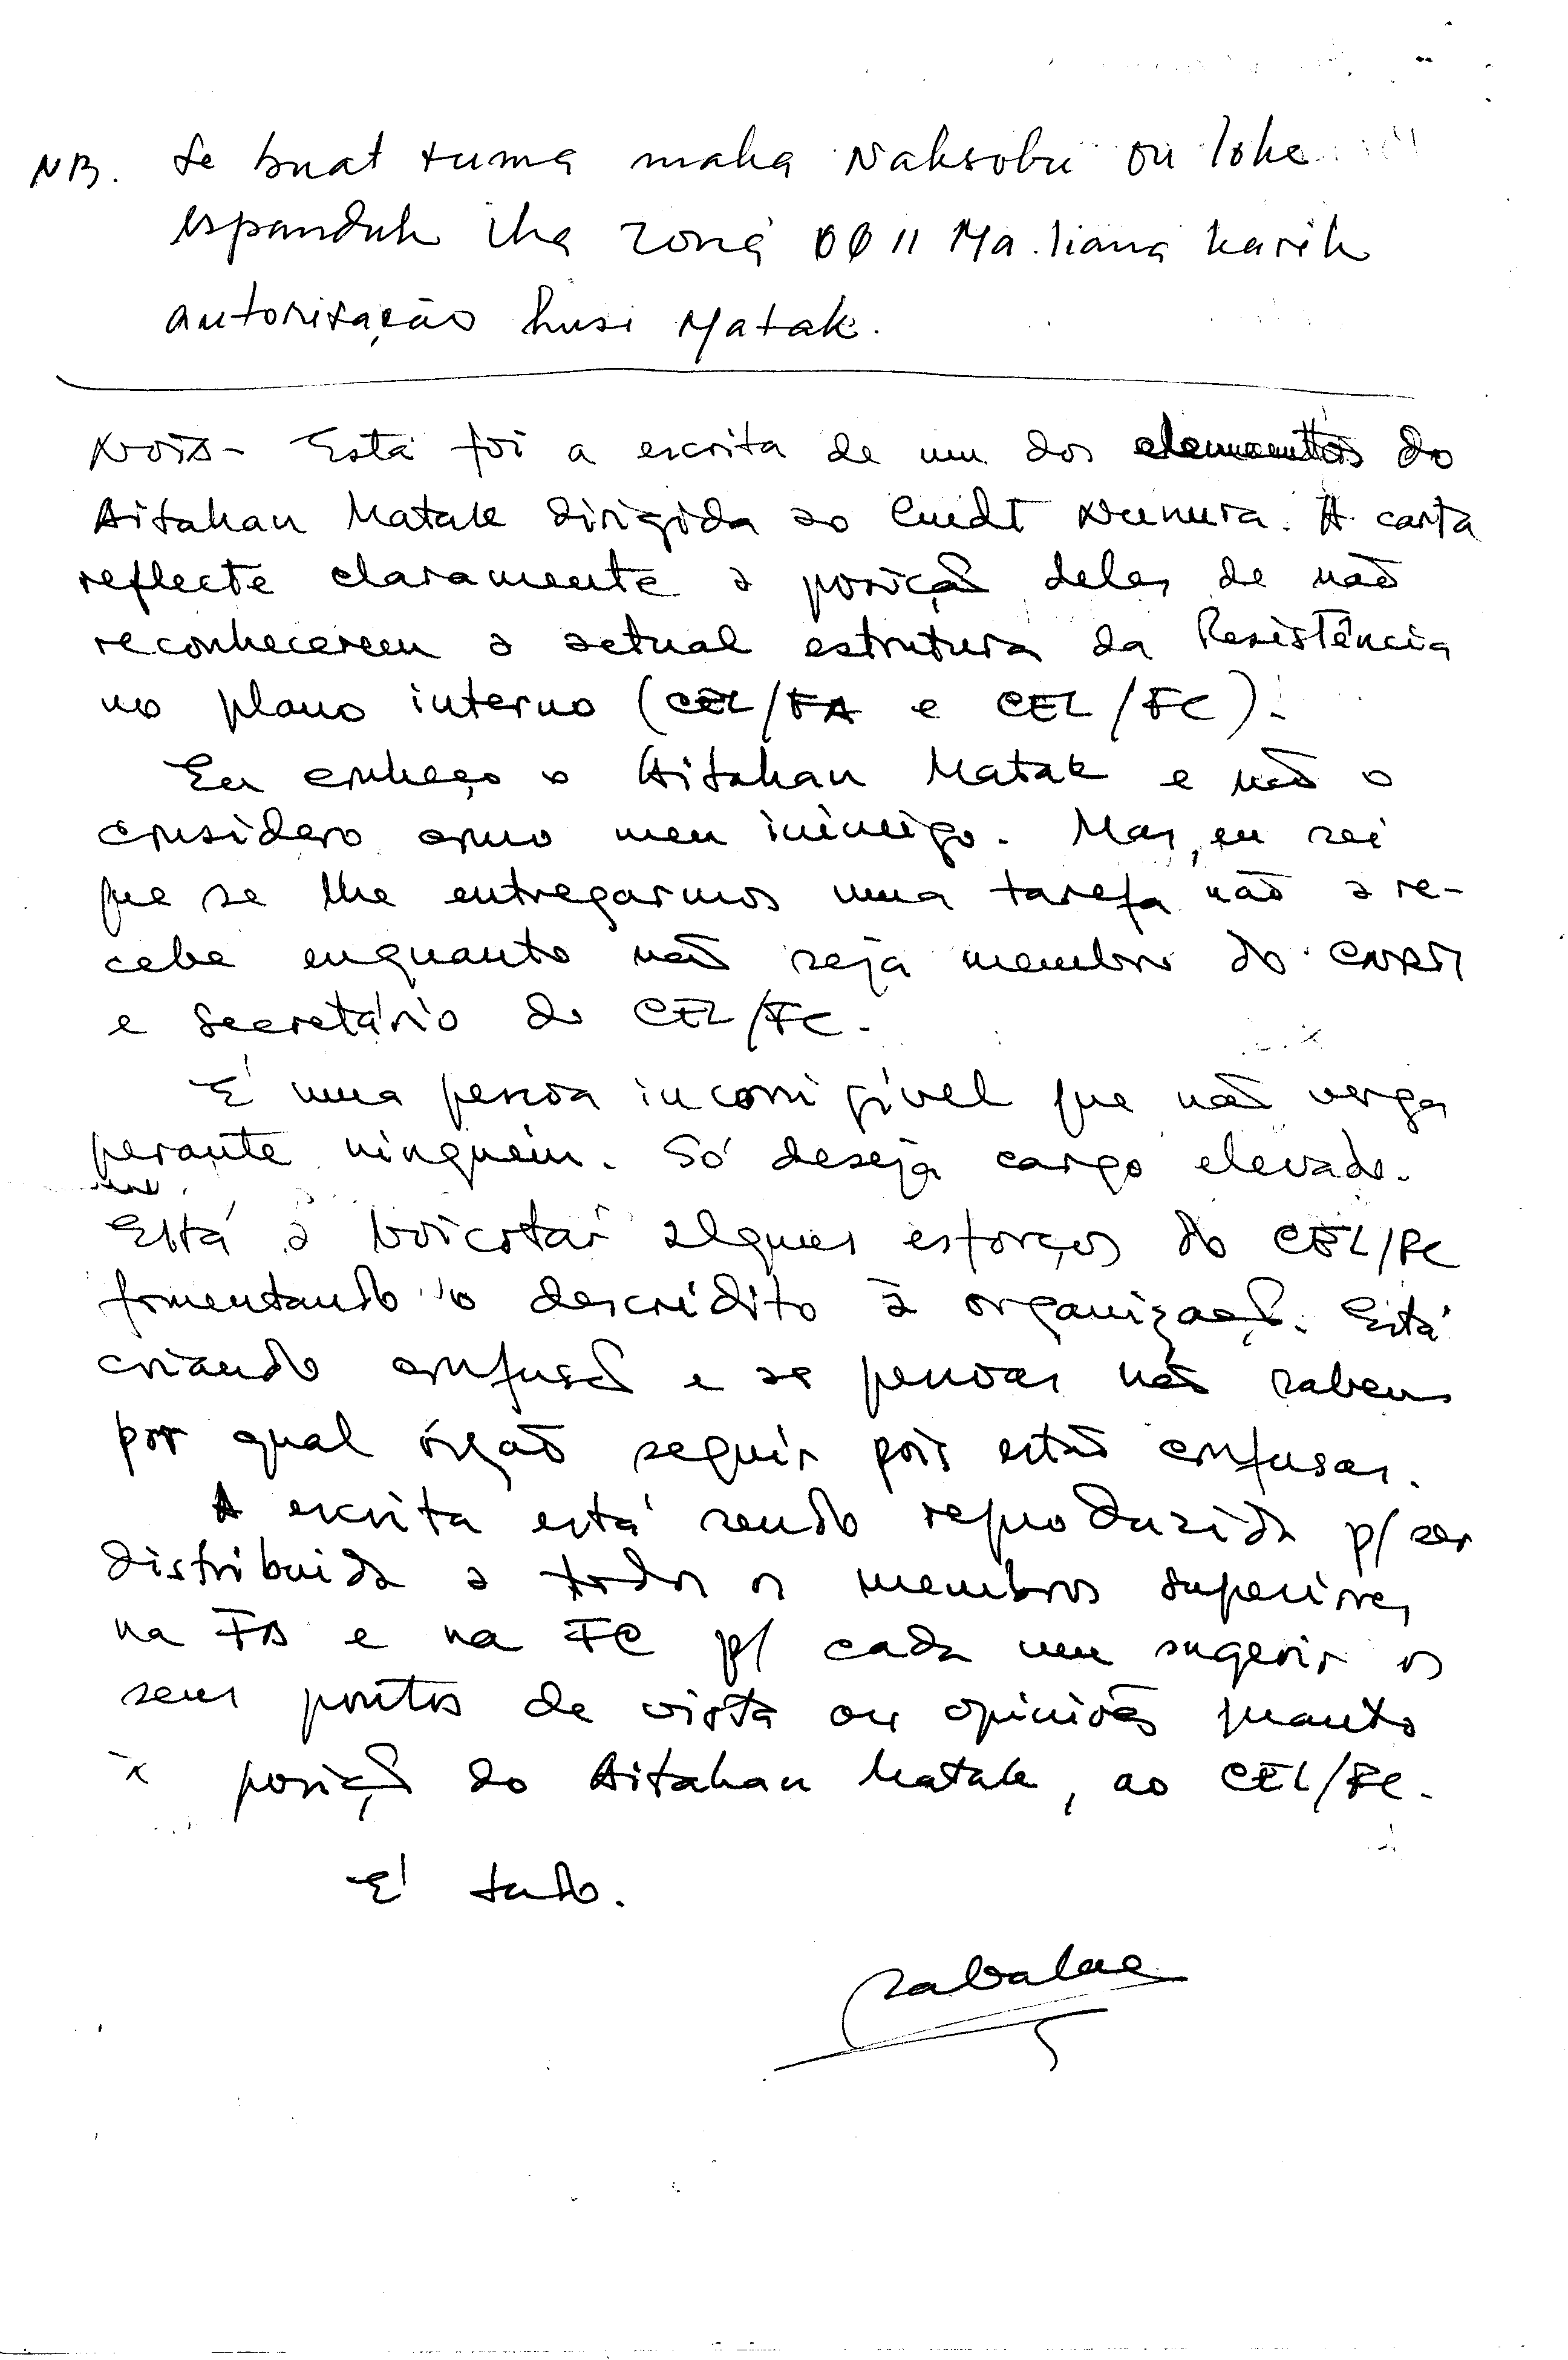 NB. Se buat ruma maka Naksobu ou loke
espanduk iha zona 0011 Maliana karik
autorização husi Matak.
Nota- Esta foi a escrita de um dos elementos do
Aitahan Matak dirigida ao Cmdt Nunura. A carta
reflecte claramente a posição deles de não
reconhecerem a actual estrutura da Resistência
no plano interno (CEL/FA e CEL/FC).
Eu conheço o Aitahan Matak e não o
considero como meu inimigo. Mas, eu sei
que se lhe entregarmos uma tarefa não a re-
cebe enquanto não seja membro do CNRM
e secretário do CEL/FC.
É uma pessoa incorrigível que não verga
perante ninguém. Só deseja cargo elevado.
Está a boicotar alguns esforços do CEL/FC
fomentando o descrédito à organização. Está
criando confusão e as pessoas não sabem
por qual órgão seguir pois estão confusas.
A escrita está sendo reproduzida p/ ser
distribuida a todos os membros superiores
na FA e na FC p/ cada um sugerir os
seus pontos de vista ou opiniões quanto
à posição do Aitahan Matak, ao CEL/FC.
É tudo.
Sabalae